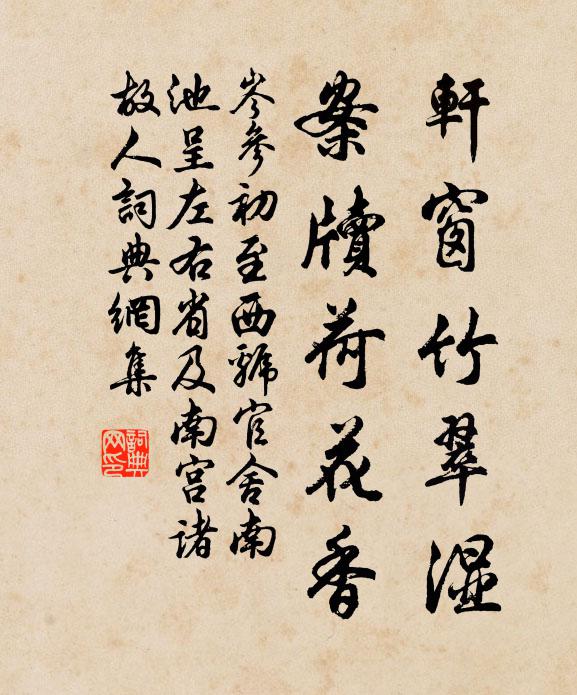 軒窗竹翠濕
案牘荷花香
岑參初至西虢官舍南
池呈左右省及南宮諸
故人詞典網集
詞典網印